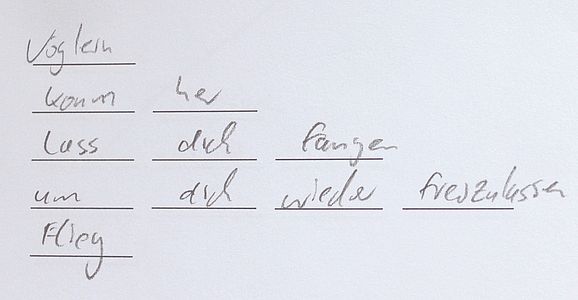 Vöglein
komm her
lass dich fangen
um dich wieder freizulassen
Flieg